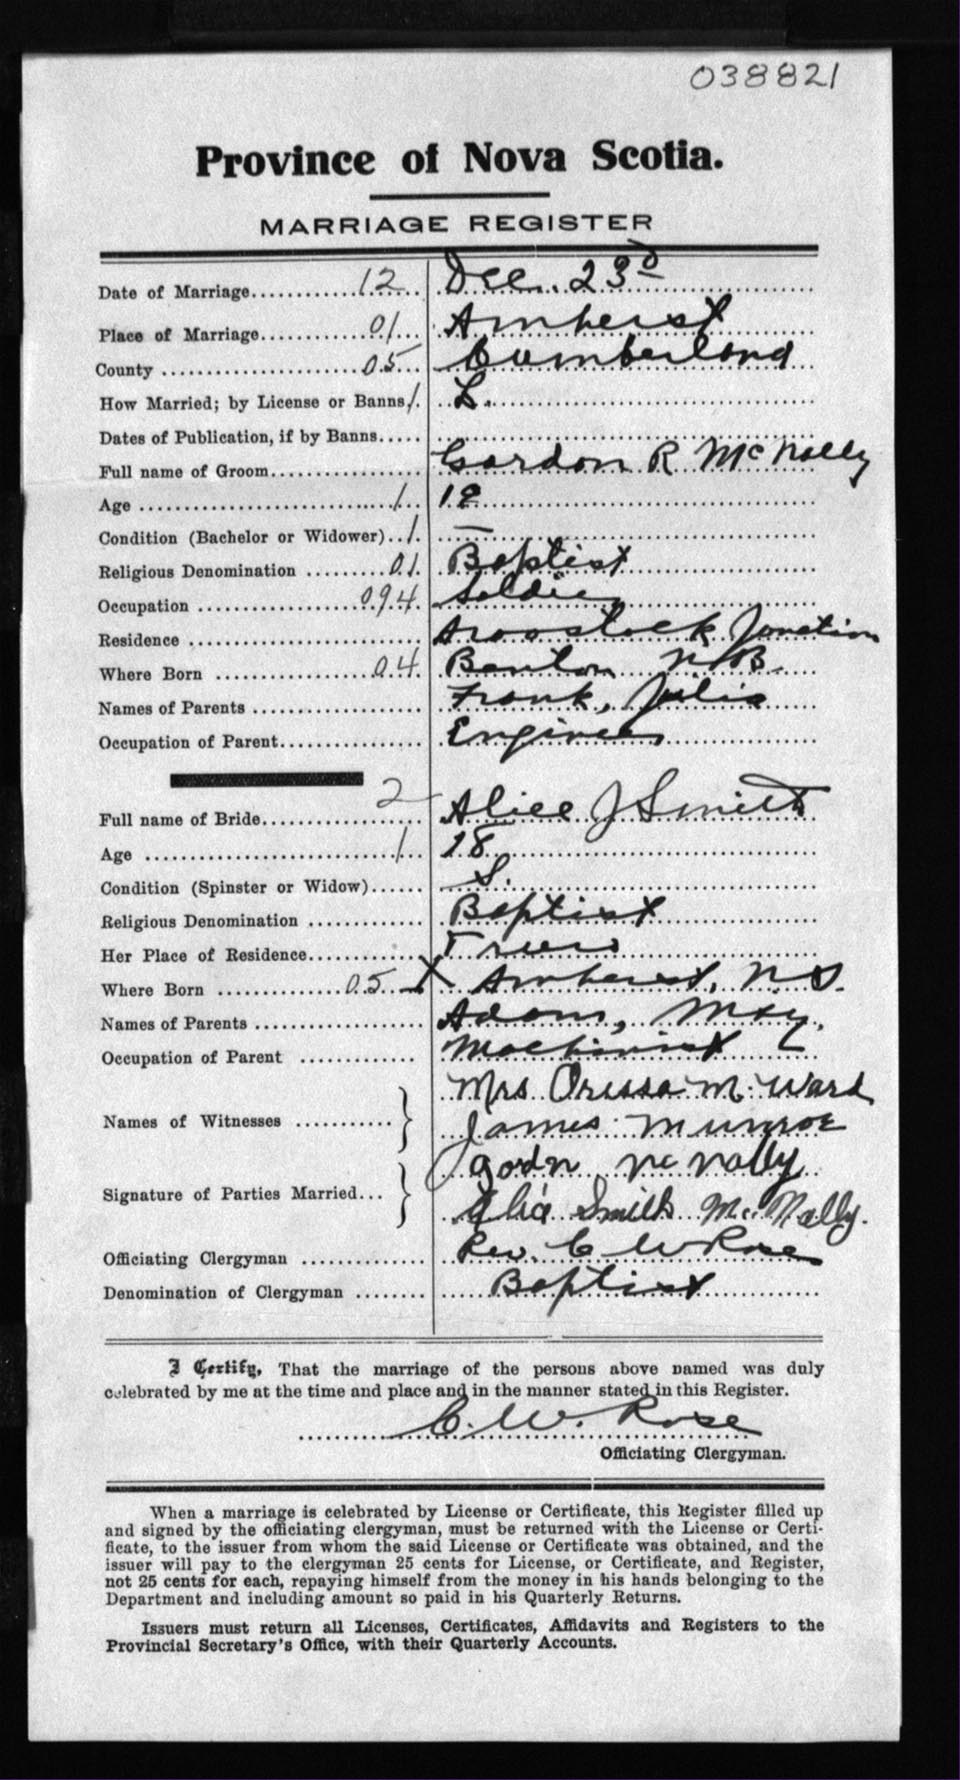 038821
Province of Nova Scotia.
MARRIAGE REGISTER
Date of Marriage 12 Dec. 23d
Place of Marriage 01 Amherst
County 05 Cumberland
How Married; by License or Banns 1 L.
Dates of Publication, if by Banns
Full name of Groom Gordon R McNally
Age 1 19
Condition (Bachelor or Widower) 1 —
Religious Denomination 01 Baptist
Occupation 094 Soldier
Residence Aroostook Junction
Where Born 04 Benton N.B.
Names of Parents Frank, Julia
Occupation of Parent Engineer
2
Full name of Bride Alice J Smith
Age 1 18
Condition (Spinster or Widow) S.
Religious Denomination Baptist
Her Place of Residence Truro
Where Born 05 X Amherst, N S.
Names of Parents Adam, May.
Occupation of Parent Machinist
Names of Witnesses } Mrs Orissa M. Ward
James Munroe
Signature of Parties Married... } Gordn Mc Nally
Smith McNally.
Officiating Clergyman Rev. C W Rose
Denomination of Clergyman Baptist
I Certify, That the marriage of the persons above named was duly
celebrated by me at the time and place and in the manner stated in this Register.
C. W. Rose
Officiating Clergyman.
When a marriage is celebrated by License or Certificate, this Register filled up
and signed by the officiating clergyman, must be returned with the License or Certi-
ficate, to the issuer from whom the said License or Certificate was obtained, and the
issuer will pay to the clergyman 25 cents for License, or Certificate, and Register,
not 25 cents for each, repaying himself from the money in his hands belonging to the
Department and including amount so paid in his Quarterly Returns.
Issuers must return all Licenses, Certificates, Affidavits and Registers to the
Provincial Secretary's Office, with their Quarterly Accounts.